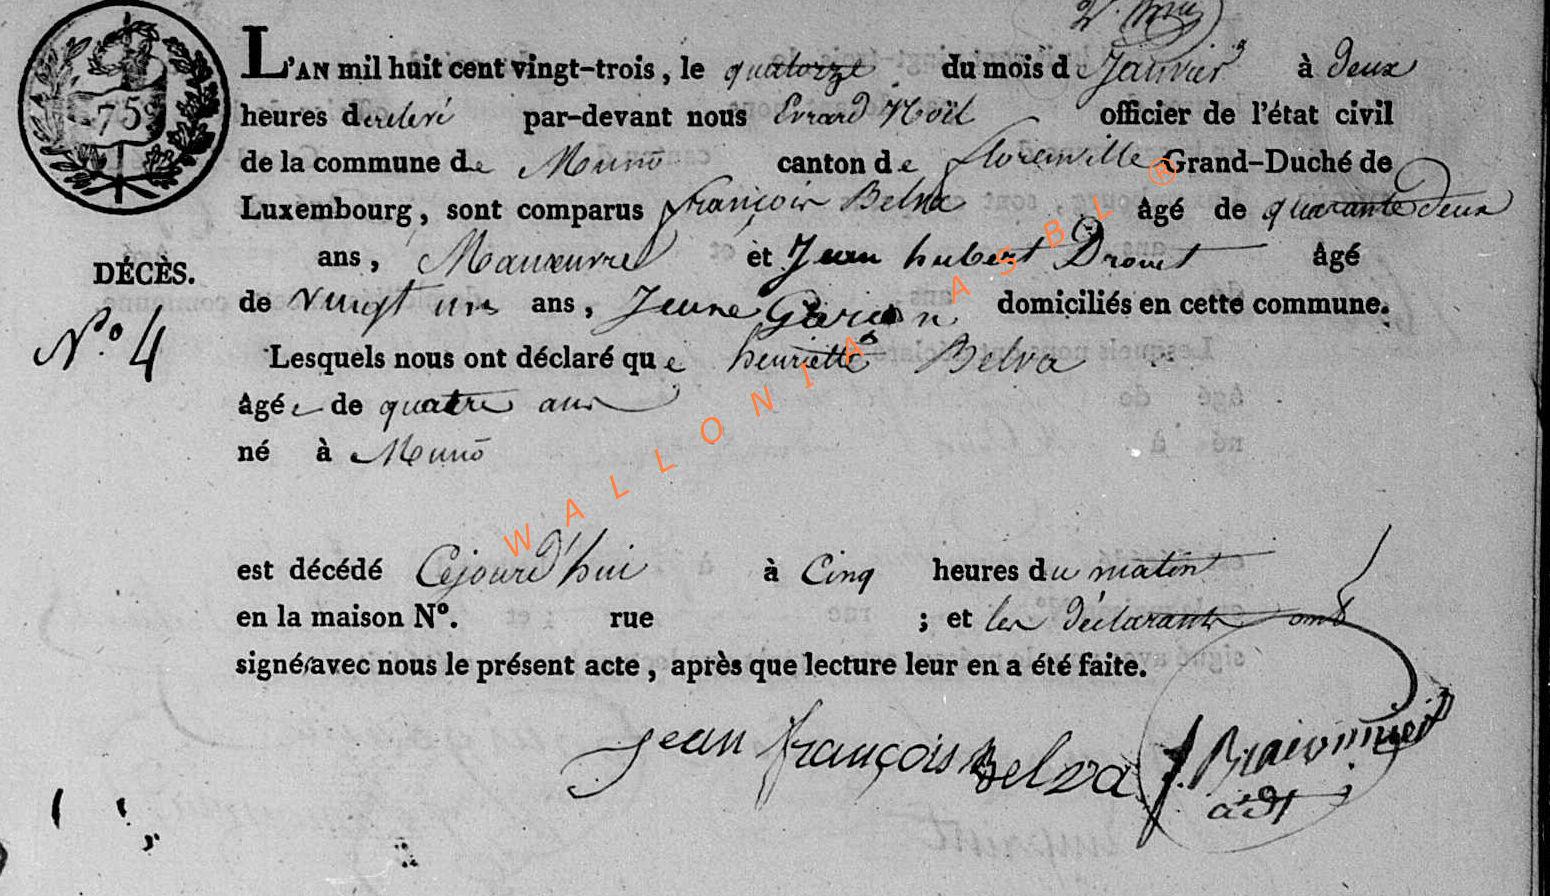 75
L'AN mil huit cent vingt-trois, le quatorze du mois de Janvier à deux
heures de relevé par-devant nous Evrard Noël officier de l'état civil
de la commune de Muno canton de florenville Grand-Duché de
Luxembourg, sont comparus françois Belva âgé de quarante deux
ans, Manœuvre et Jean hubert Drouet âgé
DÉCÈS.
de vingt un ans, Jeune Garçon domiciliés en cette commune.
N.º 4
Lesquels nous ont déclaré que henriette Belva
âgée de quatre ans
né à Muno
est décédé Cejourd'hui à Cinq heures du matin
en la maison Nº. rue ; et les déclarants ont
signé avec nous le présent acte, après que lecture leur en a été faite.
jean françois Belva J.
WALLONIA ASBL ®